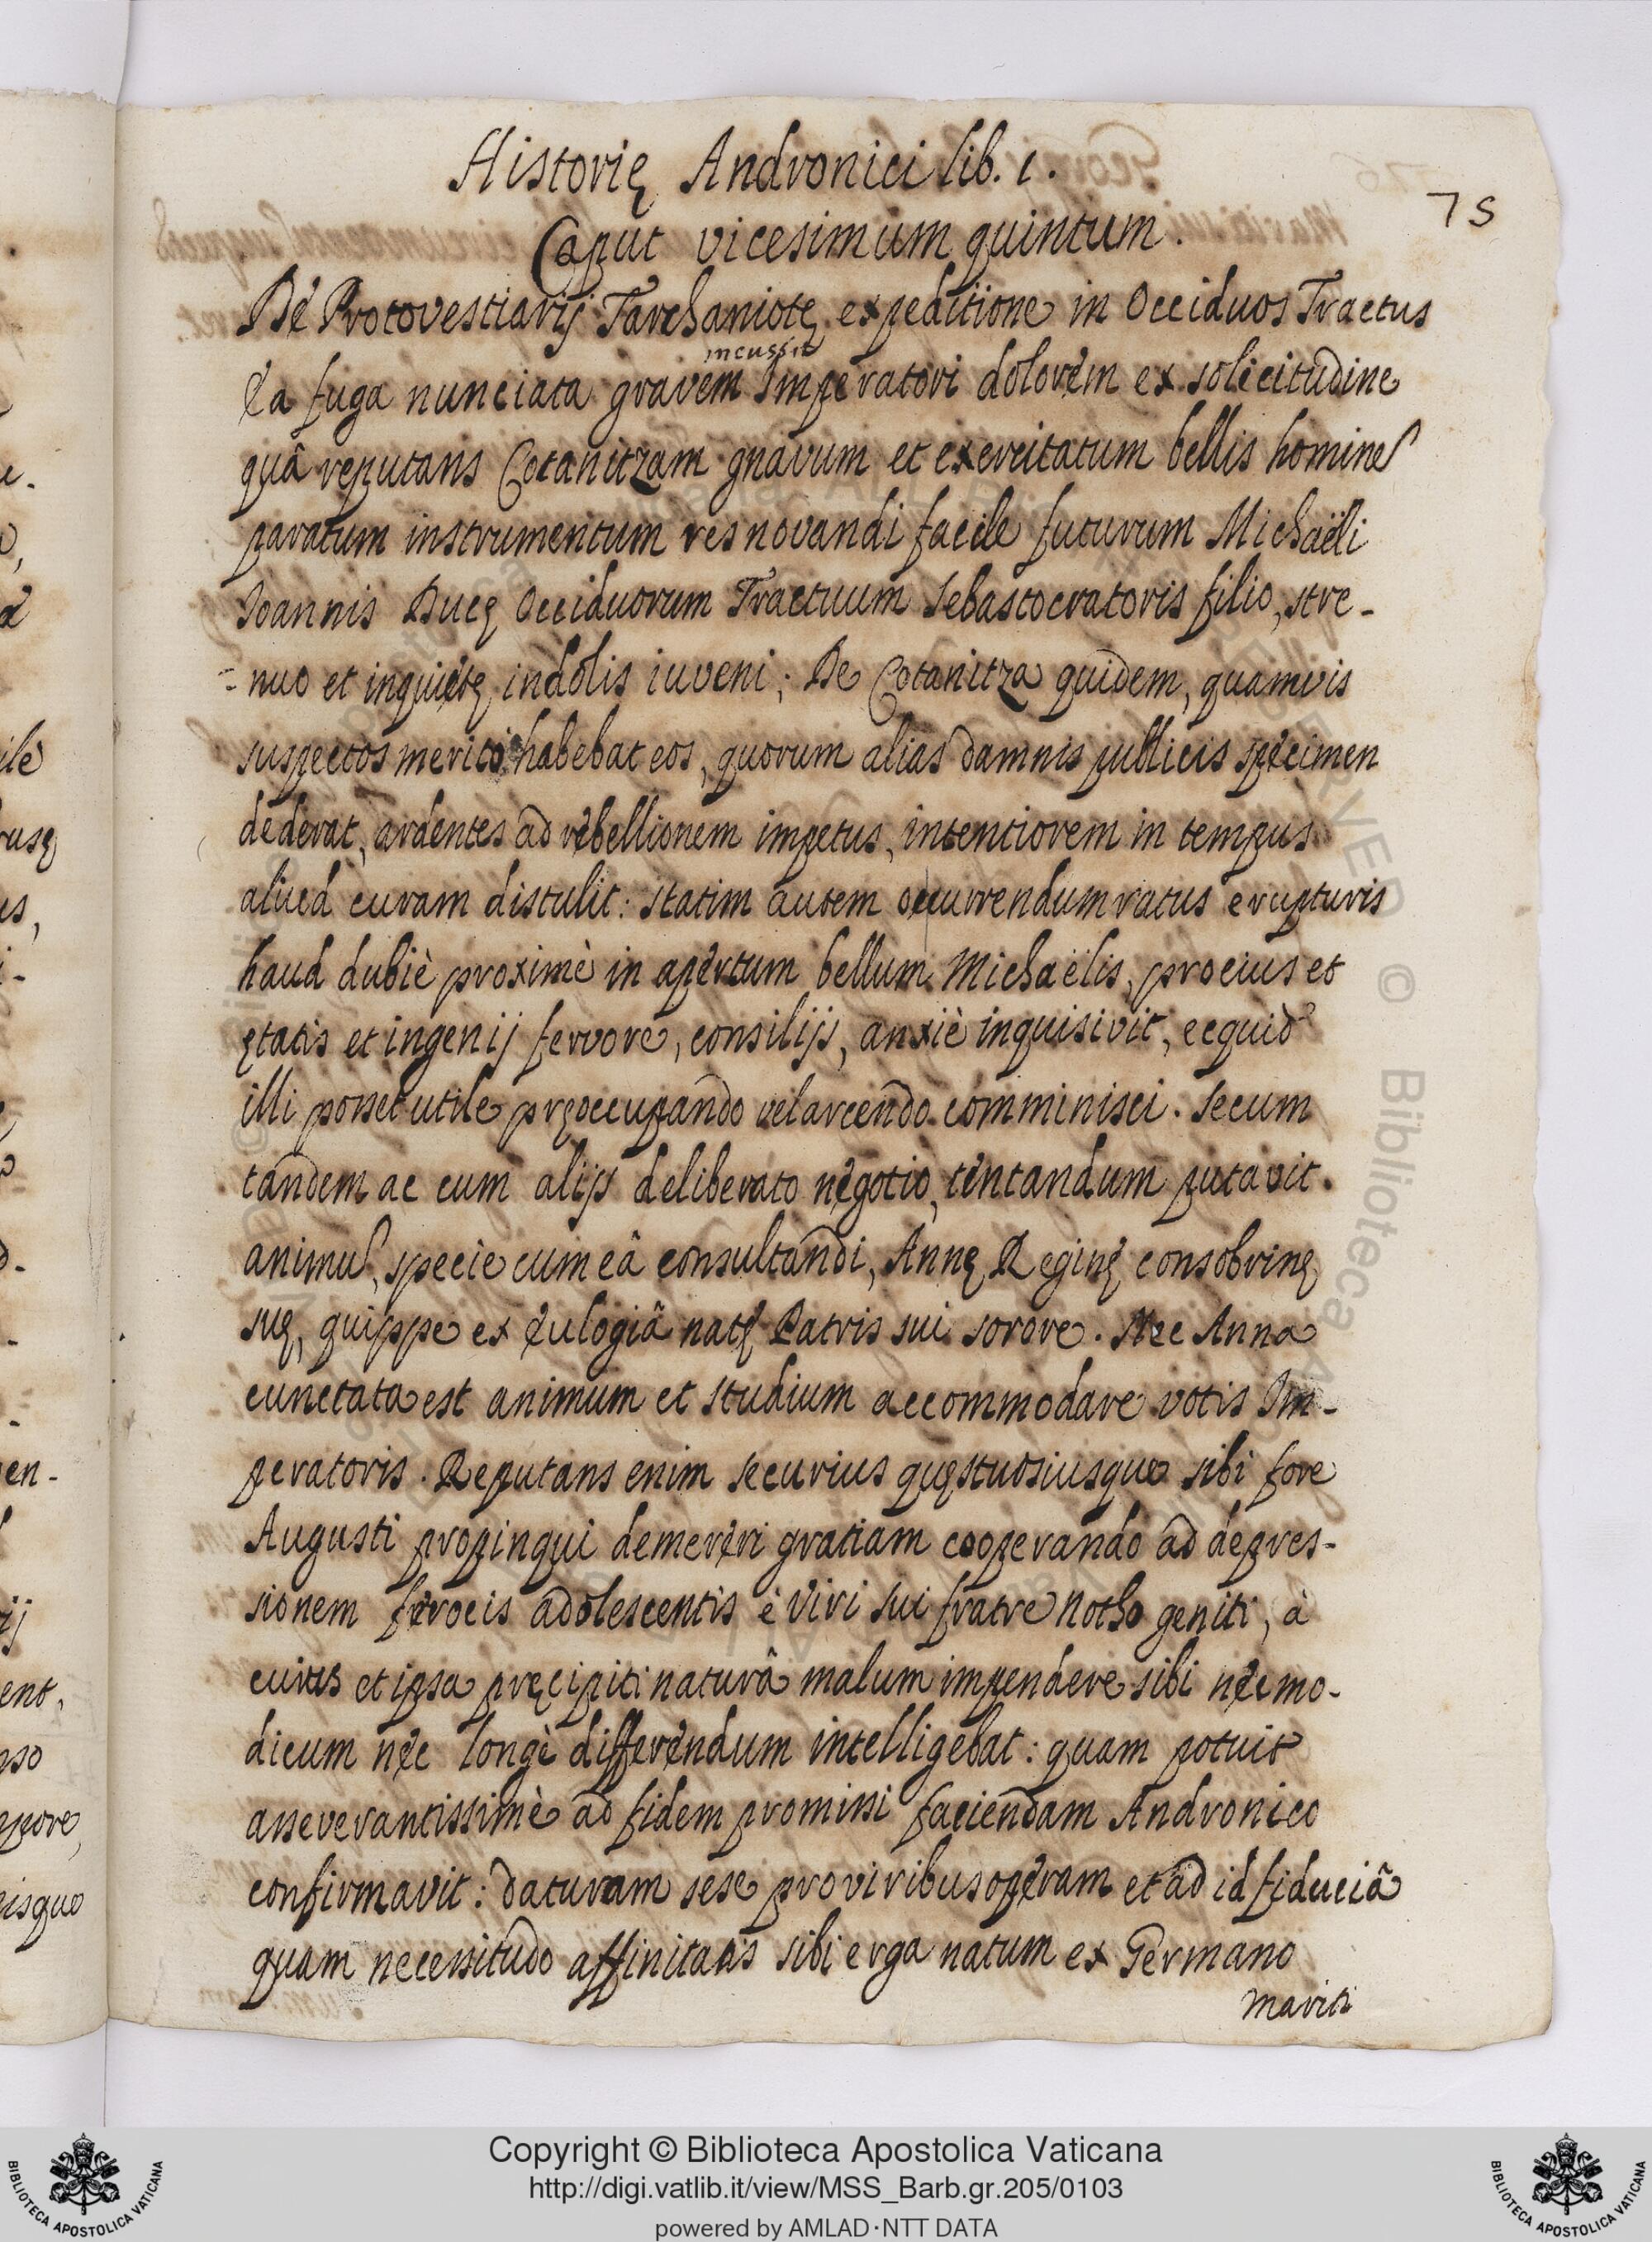 Historię Andronici lib. 1.
75
Caput vicesimum quintum.
De Protovestiarij Tarchaniotę expeditione in Occiduos Tractus
incussit
Ea fuga nunciata gravem Imperatori dolorem ex solicitudine
quâ reputans Cotanitzam gnavum et exercitatum bellis hominẽ
paratum instrumentum res novandi facile futurum Michaëli
Joannis Ducę Occiduorum Tractuum Sebastocratoris filio, stre-
-nuo et inquietę indolis iuveni; De Cotanitza quidem, quamvis
suspectos merito habebat eos, quorum alias damnis publicis specimen
dederat, ardentes ad rebellionem impetus, intentiorem in tempus
aliud curam distulit: statim autem occurrendum ratus erupturis
haud dubiè proximè in apertum bellum Michaëlis, pro eius et
ętatis et ingenij fervore, consilijs, anxiè inquisivit, ecquid
illi posset utile pręoccupando vel arcendo comminisci. Secum
tandem ac cum alijs deliberato negotio, tentandum putavit
animũ, specie cum eâ consultandi, Annę Reginę consobrinę
suę, quippe ex Eulogiâ natę Patris sui sorore. Nec Anna
cunctata est animum et studium accommodare votis Im-
peratoris. Reputans enim securius quęstuosiusque sibi fore
Augusti propinqui demereri gratiam cooperando ad depres-
sionem ferocis adolescentis è viri sui fratre notho geniti, à
cuius et ipsa pręcipiti naturâ malum impendere sibi nec mo-
dicum nec longè differendum intelligebat: quam potuit
asseverantissimè ad fidem promissi faciendam Andronico
confirmavit: daturam sese pro viribus operam et ad id fiduciâ
quam necessitudo affinitatis sibi erga natum ex Germano
mariti
Copyright © Biblioteca Apostolica Vaticana
http://digi.vatlib.it/view/MSS_Barb.gr.205/0103
powered by AMLAD·NTT DATA
BIBLIOTECA APOSTOLICA VATICANA
BIBLIOTECA APOSTOLICA VATICANA